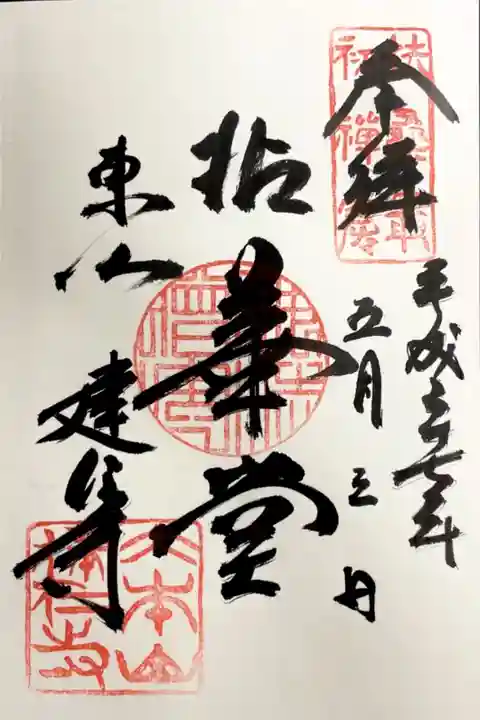 奉拝
平成二十七年
五月三日
拈華堂
東山 建仁寺
扶桑最初禅窟
大本山建仁寺